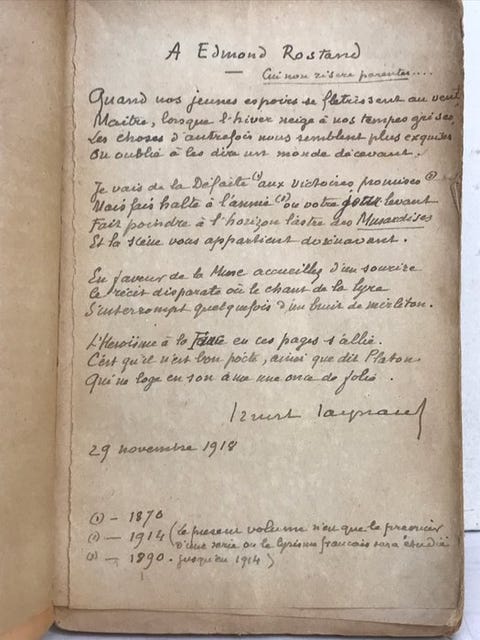 A Edmond Rostand
Cui non risere parentes....
Quand nos jeunes espoirs se flétrissent au vent
Maître, lorsque l'hiver neige à nos tempes grises,
Les choses d'autrefois nous semblent plus exquises
On oublie à les dire un monde décevant.
Je vais de la Défaite (1) aux victoires promises (2)
Mais fais halte à l'année (3) où votre levant
Fait poindre à l'horizon l'astre des Musardises
Et la scène vous appartient dorénavant.
En faveur de la Muse accueillez d'un sourire
Le récit disparate où le chant de la lyre
S'interrompt quelquefois d'un bruit de mirliton.
L'Héroïsme à la Farce en ces pages s'allie.
C'est qu'il n'est bon poète, ainsi que dit Platon
Qui ne loge en son âme une once de folie.
Ernest Raynaud
29 novembre 1918
(1) — 1870
(2) — 1914 (le présent volume n'est que le premier
d'une série où le lyrisme français sera étudié
(3) — 1890. jusqu'en 1914)